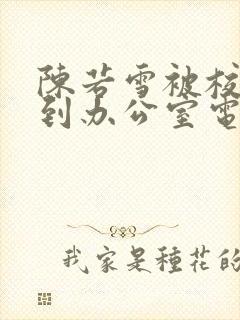 陳若雪被校
到办公室電
我家是種花的